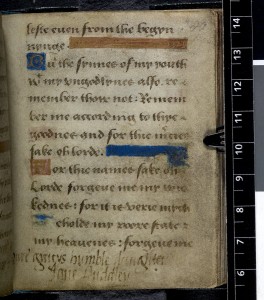 lesse even from the begyn
nynge
On the synnes of my youth
& my ungodlynes also re
member thow not: Remem
ber me according to thye
goodnes and for thie m'cies
sake oh lorde:
For thie names sake oh
Lorde forgeue me my wic
kednes: for it is verie mych
eholde my poore state:
my heauenes: forgeue me
humble doughter
Jane Duddley
14
13
12
11
10
9
8
7
6